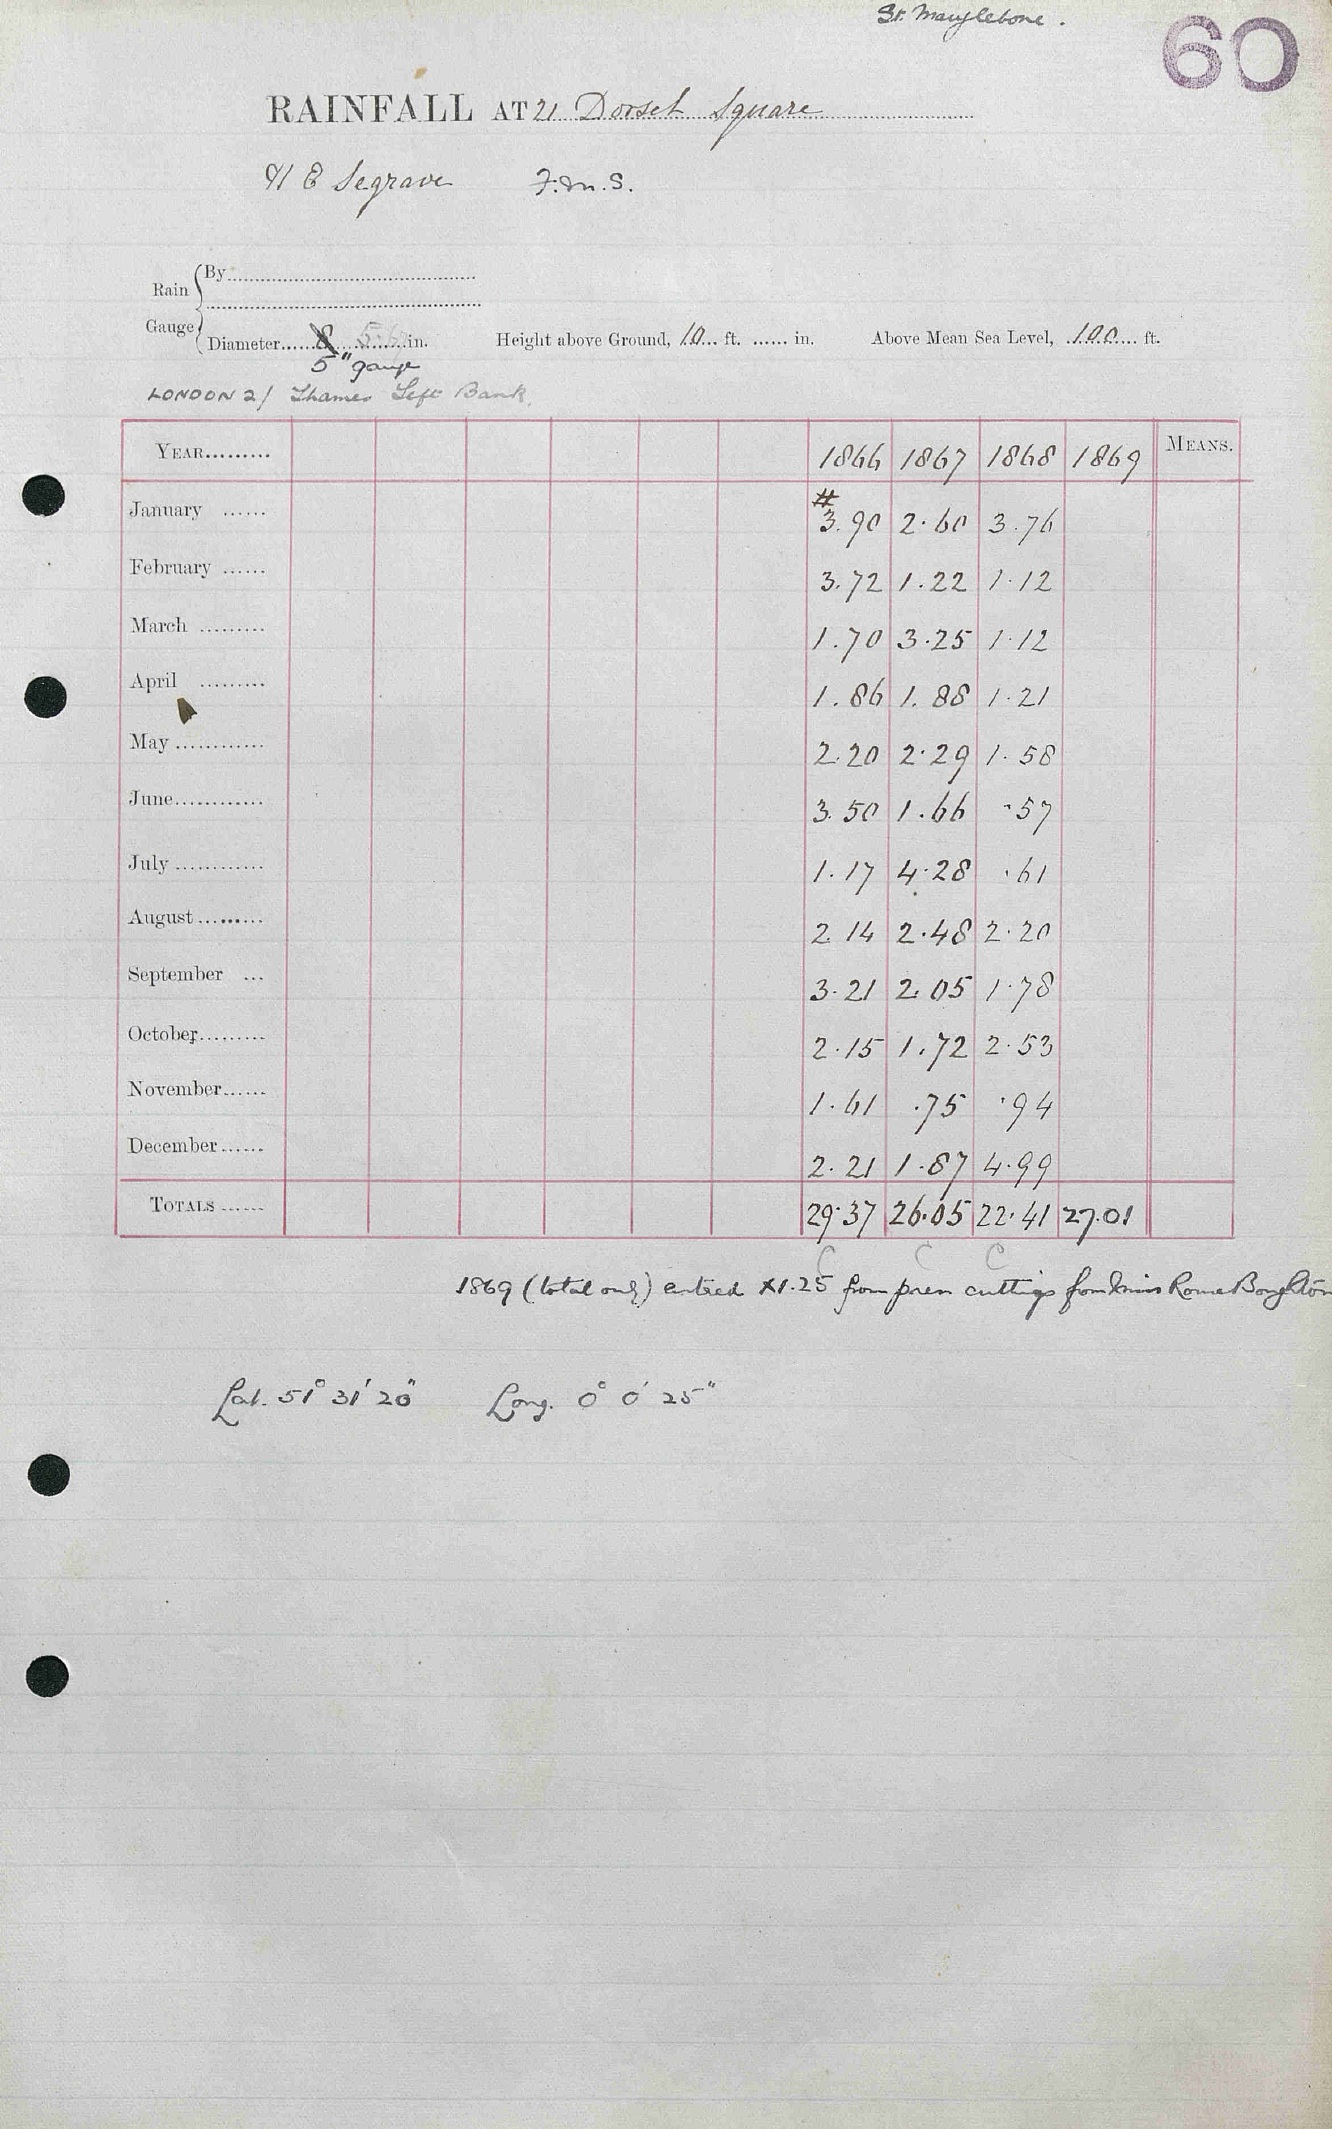 St. Marylebone.
60
RAINFALL AT 21 Dorset Square
E Segrave F.M.S.
Rain Gauge
By
Diameter 8 5.6 in.
5" gauge
Height above Ground, 10 ft. in. Above Mean Sea Level, 100 ft.
LONDON 21 Thames Left Bank
YEAR 1866 1867 1868 1869 MEANS.
#
January 3.90 2.60 3.76
February 3.72 1.22 1.12
March 1.70 3.25 1.12
April 1.86 1.88 1.21
May 2.20 2.29 1.58
June 3.50 1.66 .57
July 1.17 4.28 .61
August 2.14 2.48 2.20
September 3.21 2.05 1.78
October 2.15 1.72 2.53
November 1.61 .75 .94
December 2.21 1.87 4.99
TOTALS 29.37 26.05 22.41 27.01
C C C
1869 (total only) entered X1.25 from press cuttings from Miss Rome Boughton
Lat. 51° 31' 20" Long. 0° 0' 25"